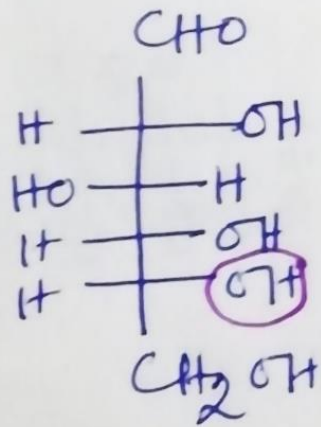 CHO
H OH
HO H
H OH
H OH
CH2OH